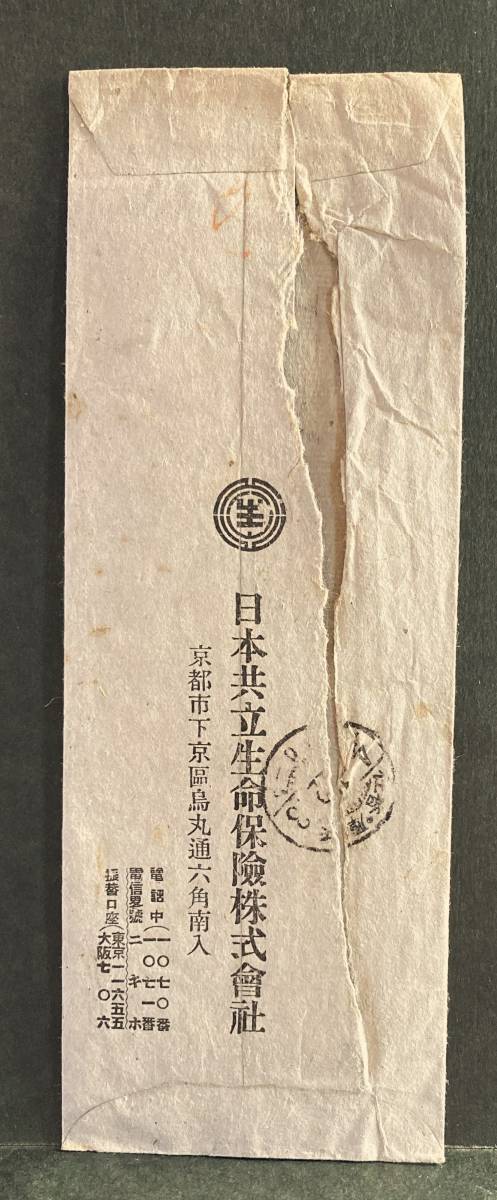 生
日本共立生命保險株式會社
京都市下京區烏丸通六角南入
電話中(一〇七〇番
一〇七一番
電信畧號 ニキホ
振替口座(東京一一六五五
大阪七〇六